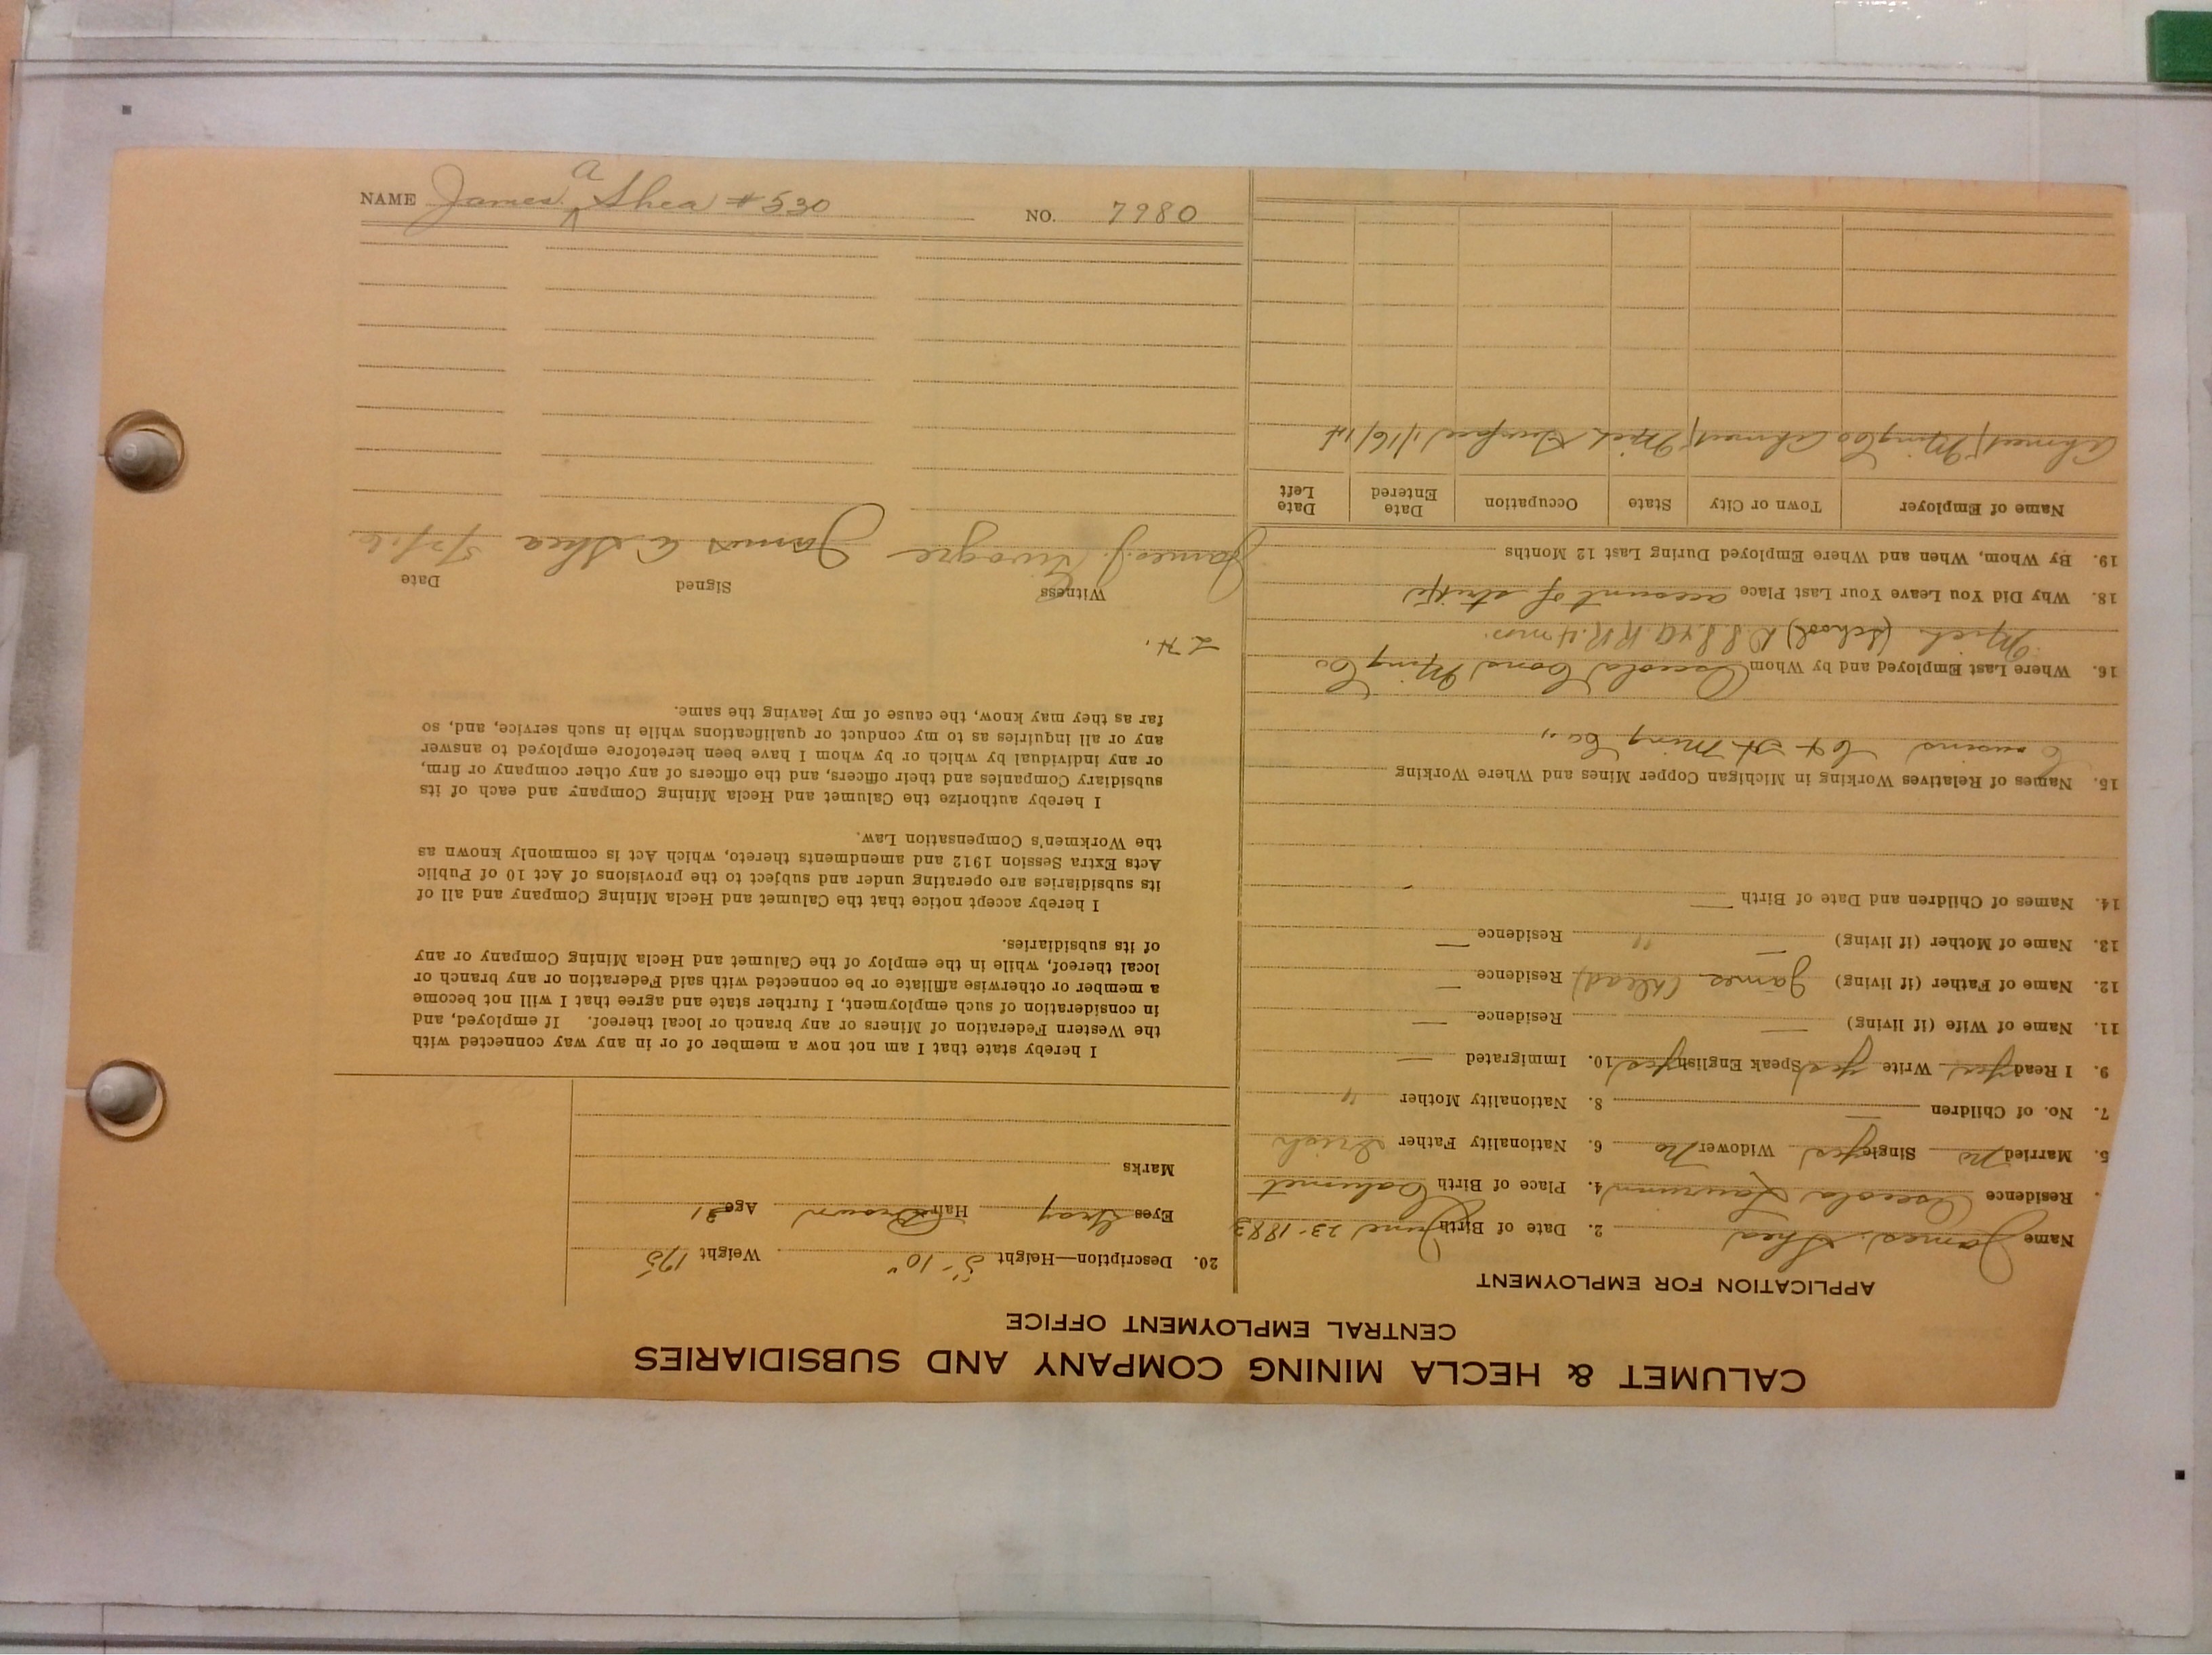 CALUMET & HECLA MINING COMPANY AND SUBSIDIARIES
CENTRAL EMPLOYMENT OFFICE
APPLICATION FOR EMPLOYMENT
Name James Shea 2. Date of Birth June 23-1883
Residence Osceola 4. Place of Birth Calumet
5. Married no Single yes Widower No 6. Nationality Father Irish
7. No. of Children — 8. Nationality Mother "
9. I Read yes Write yes Speak English yes 10. Immigrated —
11. Name of Wife (if living) — Residence —
12. Name of Father (if living) James (dead) Residence —
13. Name of Mother (if living) — " Residence —
14. Names of Children and Date of Birth —
15. Names of Relatives Working in Michigan Copper Mines and Where Working
Cousins C & H Ming Co.,
16. Where Last Employed and by Whom Osceola Cons Ming Co
Mich. (School) R.R. 4 mos.
18. Why Did You Leave Your Last Place account of strike
19. By Whom, When and Where Employed During Last 12 Months
Name of Employer Town or City State Occupation Date Entered Date Left
Ahmeek Ming Co Ahmeek Mich Surface 1/16/14
20. Description—Height 5'-10" Weight 175
Eyes Gray Hair Brown Age 31
Marks
I hereby state that I am not now a member of or in any way connected with
the Western Federation of Miners or any branch or local thereof. If employed, and
in consideration of such employment, I further state and agree that I will not become
a member or otherwise affiliate or be connected with said Federation or any branch or
local thereof, while in the employ of the Calumet and Hecla Mining Company or any
of its subsidiaries.
I hereby accept notice that the Calumet and Hecla Mining Company and all of
its subsidiaries are operating under and subject to the provisions of Act 10 of Public
Acts Extra Session 1912 and amendments thereto, which Act is commonly known as
the Workmen's Compensation Law.
I hereby authorize the Calumet and Hecla Mining Company and each of its
subsidiary Companies and their officers, and the officers of any other company or firm,
or any individual by which or by whom I have been heretofore employed to answer
any or all inquiries as to my conduct or qualifications while in such service, and, so
far as they may know, the cause of my leaving the same.
L.H.
Witness Signed Date
James J. James A Shea
NAME James A Shea #530 NO. 7980